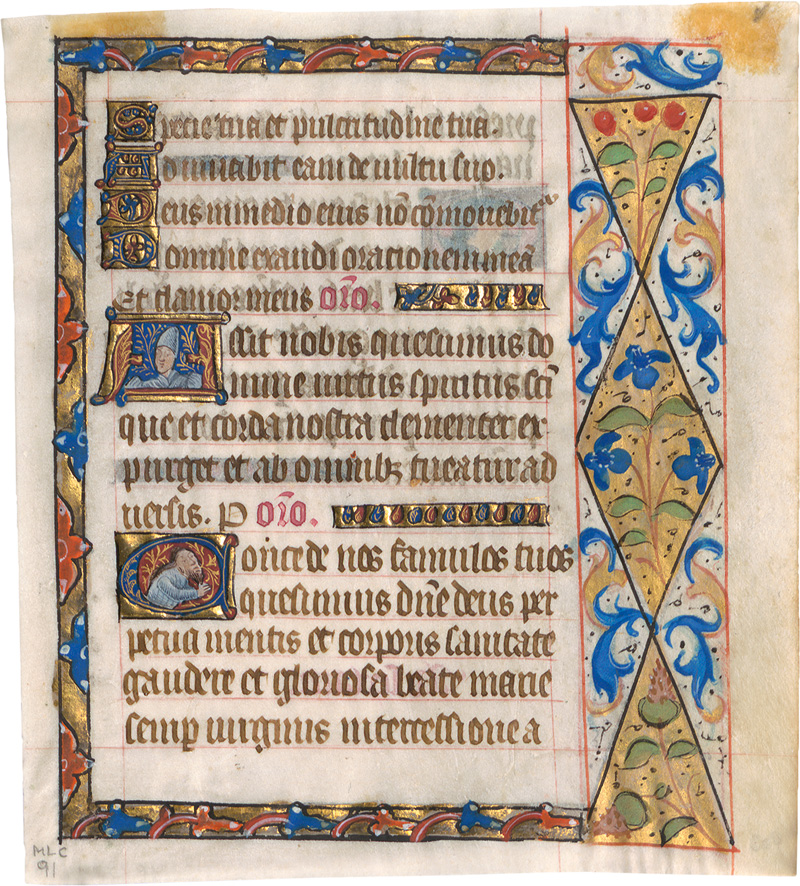 Specie tua et pulcritudine tua.
Adiuuabit eam deus uultu suo.
Deus in medio eius nō cōmouebitr
Domine exaudi orationem meā
Et clamor meus orō.
Assit nobis quesumus do
mine uirtus spiritus scī
que et corda nostra clementer ex
purget et ab omnibꝫ tueatur ad
uersis. P orō.
Concede nos famulos tuos
quesumus dn̄e deus per
petua mentis et corporis sanitate
gaudere et gloriosa beate marie
semp uirginis intercessione a
MLC
91